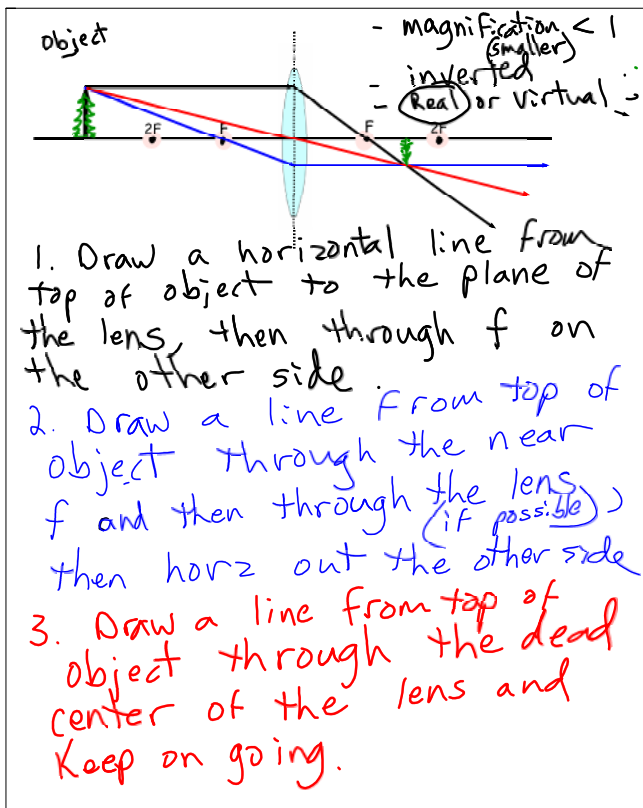 object
- magnification < 1
(smaller)
- inverted
- Real or virtual
2F
F
F
2F
1. Draw a horizontal line from
top of object to the plane of
the lens, then through f on
the other side.
2. Draw a line from top of
object through the near
f and then through the lens
(if possible),
then horz out the other side
3. Draw a line from top of
object through the dead
center of the lens and
Keep on going.